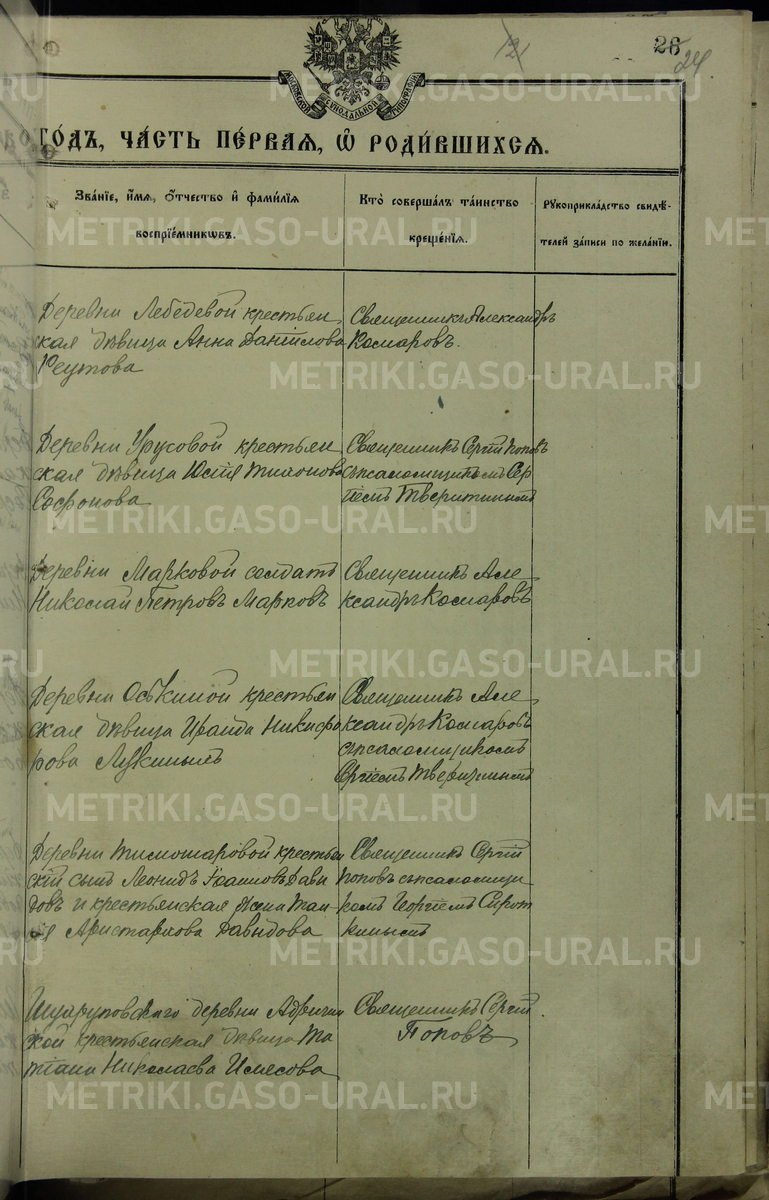 26
24
МОСКОВСКОЙ СѴНОДАЛЬНОЙ ТИПОГРАФІИ
ГО́ДЪ, ЧА́СТЬ ПЕ́РВАЯ, Ѡ҆ РОДИ́ВШИХСЯ.
Зва́ніе, и҆́мя, ѻ҆́тчество и҆ фами́лія
воспріе́мникѡвъ.
Кто̀ соверша́лъ та́инство
креще́нія.
Рꙋкоприкла́дство свидѣ́-
телей за́писи по жела́нію.
Деревни Лебедевой крестьян
ская дѣвица Анна Даніилова
Реутова
Священникъ Александръ
Комаровъ.
Деревни Урусовой крестьян
ская дѣвица Юлія Тихонова
Сафонова
Священникъ Сергій Поповъ
съ псаломщикомъ Сер
гіемъ Тверитинымъ
Деревни Марковой солдатъ
Николай Петровъ Марковъ
Священникъ Але
ксандръ Комаровъ
Деревни Оськиной крестьян
ская дѣвица Ираида Никифо
рова Лукиныхъ
Священникъ Але
ксандръ Комаровъ
съ псаломщикомъ
Сергіемъ Тверитинымъ
Деревни Тимошаровой крестьян
скій сынъ Леонидъ Іоанновъ Давы
довъ и крестьянская жена
Аристархова Давыдова
Священникъ Сергій
Поповъ съ псаломщи
комъ Георгіемъ Сирот
кинымъ
деревни
крестьянская дѣвица Та
тіана Николаева
Священникъ Сергій
Поповъ
METRIKI.GASO-URAL.RU